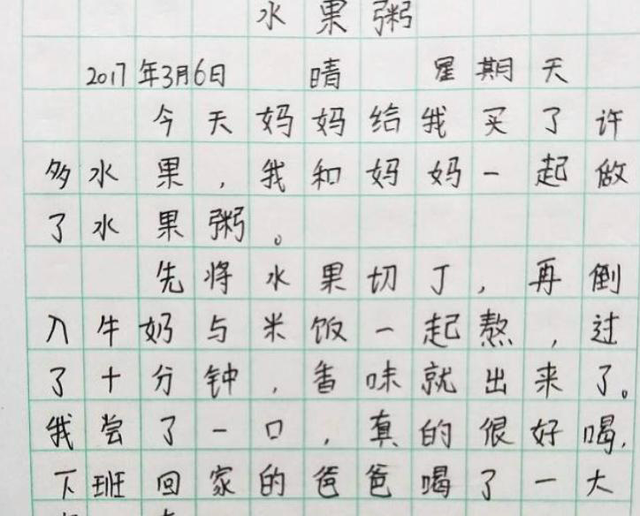 水果粥
2017年3月6日 晴 星期天
今天妈妈给我买了许
多水果，我和妈妈一起做
了水果粥。
先将水果切丁，再倒
入牛奶与米饭一起熬，过
了十分钟，香味就出来了。
我尝了一口，真的很好喝，
下班回家的爸爸喝了一大